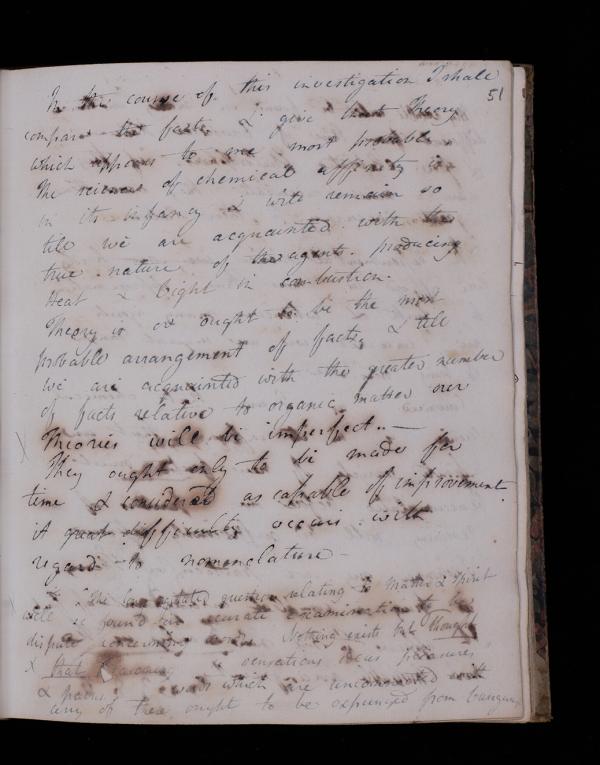 In the course of this investigation I shall
51
compare the facts & give that Theory
which appears to me most probable.
The science of chemical affinity is
in its infancy & will remain so
till we are acquainted with the
true nature of the agents producing
Heat & Light in combustion.
Theory is or ought to be the most
probable arrangement of facts, & till
we are acquainted with the greater number
of facts relative to organic matter our
Theories will be imperfect. —
They ought only to be made for
time & considered as capable of improvement.
A great difficulty occurs with
regard to nomenclature —
The long agitated question relating to Matter & Spirit
will be found on accurate examination to be
dispute concerning words. Nothing exists but Thoughts
& sensations ideas pleasures
& pains. words which are unconnected with
any of these ought to be expunged from language